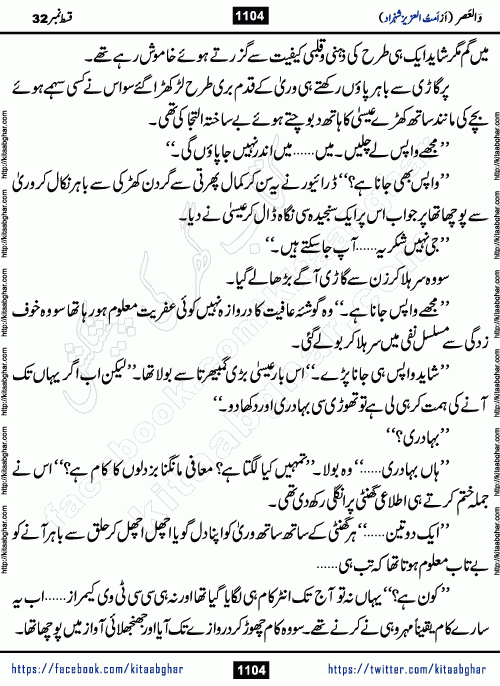 وَالعَصر (از اَمتُ العزیز شہزاد) 1104 قسط نمبر 32
میں گم مگر شاید ایک ہی طرح کی ذہنی و قلبی کیفیت سے گزرتے ہوئے خاموش رہے تھے۔
پر گاڑی سے باہر پاؤں رکھتے ہی وریٰ کے قدم بری طرح لڑکھڑا گئے سو اس نے کسی سہمے ہوئے
بچے کی مانند ساتھ کھڑے عیسیٰ کا ہاتھ دبوچتے ہوئے بے ساختہ التجا کی تھی۔
’’مجھے واپس لے چلیں۔ میں......میں اندر نہیں جا پاؤں گی۔‘‘
’’واپس بھی جانا ہے؟‘‘ ڈرائیور نے یہ سن کر کمال پھرتی سے گردن کھڑکی سے باہر نکال کر وریٰ
سے پوچھا تھا پر جواب اس پر ایک سنجیدہ سی نگاہ ڈال کر عیسیٰ نے دیا۔
’’جی نہیں شکریہ......آپ جا سکتے ہیں۔‘‘
سو وہ سر ہلا کر زن سے گاڑی آگے بڑھا لے گیا۔
’’مجھے واپس جانا ہے۔‘‘ وہ گوشۂ عافیت کا دروازہ نہیں کوئی عفریت معلوم ہو رہا تھا سو وہ خوف
زدگی سے مسلسل نفی میں سر ہلا کر بولے گئی۔
’’شاید واپس ہی جانا پڑے۔‘‘ اس بار عیسیٰ بڑی گمبھیرتا سے بولا تھا۔ ’’لیکن اب اگر یہاں تک
آنے کی ہمت کر ہی لی ہے تو تھوڑی سی بہادری اور دکھا دو۔‘‘
’’بہادری؟‘‘
’’ہاں بہادری......‘‘ وہ بولا۔ ’’تمہیں کیا لگتا ہے؟ معافی مانگنا بزدلوں کا کام ہے؟‘‘ اس نے
جملہ ختم کرتے ہی اطلاعی گھنٹی پر انگلی رکھ دی تھی۔
’’ایک دو تین......‘‘ ہر گھنٹی کے ساتھ ساتھ وریٰ کو اپنا دل گویا اچھل اچھل کر حلق سے باہر آنے کو
بے تاب معلوم ہوتا تھا کہ تب ہی......
’’کون ہے؟‘‘ یہاں نہ تو آج تک انٹرکام ہی لگایا گیا تھا اور نہ ہی سی سی ٹی وی کیمراز......اب یہ
سارے کام یقیناً مہرو ہی نے کرنے تھے۔ سو وہ کام چھوڑ کر دروازے تک آیا اور جھنجھلائی آواز میں پوچھا تھا۔
https://facebook.com/kitaabghar 1104 https://twitter.com/kitaabghar
http://kitaabghar.com
http://kitaabghar.com
http://kitaabghar.com
http://kitaabghar.com
http://kitaabghar.com
http://kitaabghar.com
http://kitaabghar.com
http://kitaabghar.com